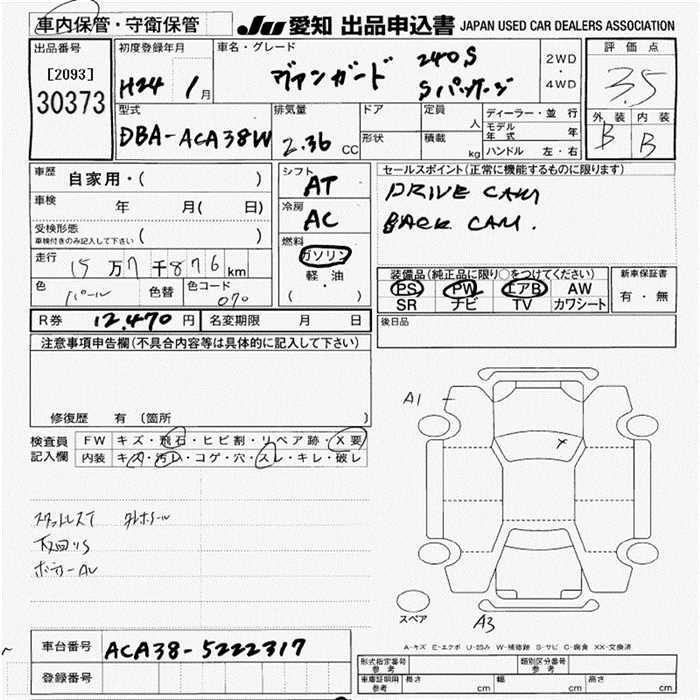 車内保管・守衛保管 JU 愛知 出品申込書 JAPAN USED CAR DEALERS ASSOCIATION
出品番号 [2093] 30373
初度登録年月 H24 1月
車名・グレード ヴァンガード 240S Sパッケージ
2WD・4WD
評価点 3.5
外装 B 内装 B
型式 DBA-ACA38W
排気量 2.36 CC
ドア 形状
定員 人 積載 kg
ディーラー・並行
モデル年式 年
ハンドル 左・右
車歴 自家用・( )
車検 年 月( 日)
受検形態 車検付きのみ記入して下さい ( )
走行 15万7千876km
色 パール 色替 色コード 070
シフト AT
冷房 AC
燃料 ガソリン 軽・油 ( )
セールスポイント(正常に機能するものに限ります)
DRIVE CAM
BACK CAM.
装備品(純正品に限り○をつけてください)
PS PW エアB AW
SR ナビ TV カワシート
新車保証書 有・無
後日品
R券 12,470円 名変期限 月 日
注意事項申告欄(不具合内容等は具体的に記入して下さい)
修復歴 有 (箇所 )
検査員記入欄
FW キズ・飛石・ヒビ割・リペア跡・X要
内装 キズ・汚レ・コゲ・穴・スレ・キレ・破レ
A1
X
スタットレスT
下回りS
スペア
A3
A-キズ E-エクボ U-凹み W-補修跡 S-サビ C-腐食 XX-交換済
車台番号 ACA38-5222317
登録番号
形式指定番号 参考 類別区分番号 参考
車庫証明用 参考 長さ cm 幅 cm 高さ cm